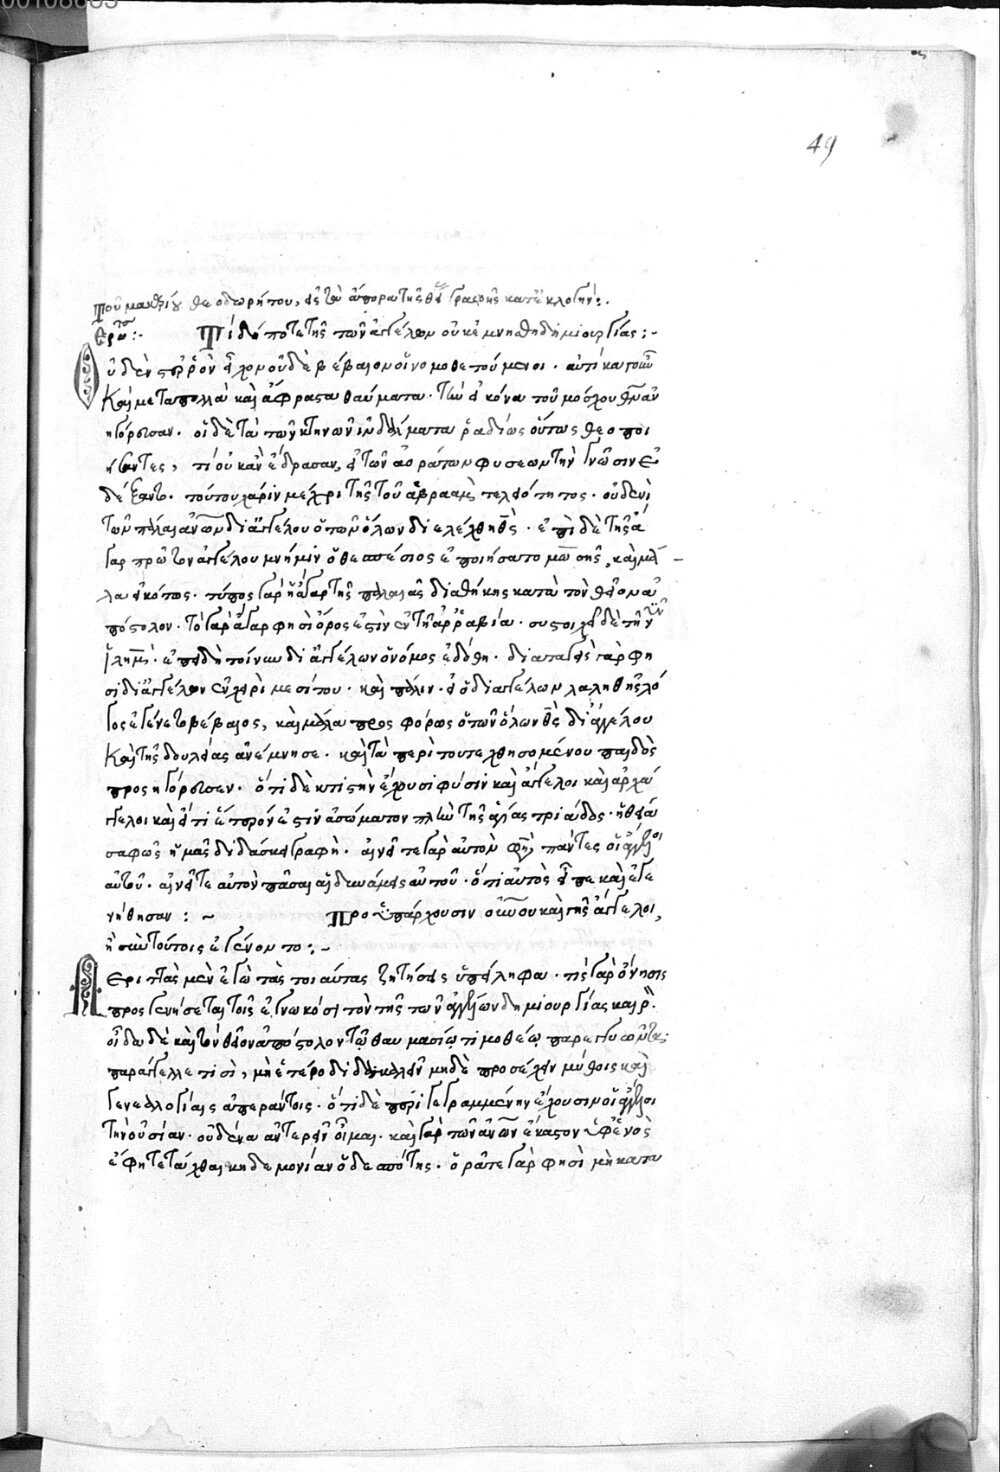 00108663
49
τοῦ μακαρίου θεοδωρήτου, εἰς τὰ ἄπορα τῆς θείας γραφῆς κατ' ἐκλογήν:
Ἐρώ: Τί δήποτε τῆς τῶν ἀγγέλων οὐκ ἐμνήσθη δημιουργίας:
Οὐδὲν στερρὸν εἶχον οὐδὲ βέβαιον οἱ νομοθετούμενοι. αὐτίκα τοίνυν
καὶ μετὰ πολλὰ καὶ ἄφραστα θαύματα. τὴν εἰκόνα τοῦ μόσχου θεὸν ἀν
ηγόρευσαν. οἱ δὲ τὰ τῶν κτηνῶν ἰνδάλματα ῥαδίως οὕτως θεοποι
ήσαντες, τί οὐκ ἂν ἔδρασαν, εἰ τῶν ἀοράτων φύσεων τὴν γνῶσιν ἐ
δέξαντο. τούτου χάριν μέχρι τῆς τοῦ ἀβραὰμ τελειότητος. οὐδενὶ
τῶν παλαιῶν ἀνων δι' ἀγγέλου ὁ τῶν ὅλων διελέχθη θς. ἐπὶ δὲ τῆς ἄ
γαρ πρῶτον ἀγγέλου μνήμην ὁ θεσπέσιος ἐποιήσατο μωσῆς, καὶ μά
λα εἰκότως. τύπος γὰρ ἡ ἄγαρ τῆς παλαιᾶς διαθήκης κατὰ τὸν θεῖον ἀ
πόστολον. τὸ γὰρ ἄγαρ φησὶ ὄρος ἐστὶν ἐν τῇ ἀρραβία. συστοιχεῖ δὲ τῇ νῦν
ἱλημ. ἐπειδὴ τοίνυν δι' ἀγγέλων ὁ νόμος ἐδόθη. διαταγεὶς γάρ φη
σι δι' ἀγγέλων ἐν χειρὶ μεσίτου. καὶ πάλιν. εἰ ὁ δι' ἀγγέλων λαληθεὶς λό
γος ἐγένετο βέβαιος, καὶ μάλα προσφόρως ὁ τῶν ὅλων θς δι' ἀγγέλου
καὶ τῆς δουλείας ἀνέμνησε. καὶ τὰ περὶ τοῦ τεχθησομένου παιδὸς
προσηγόρευσεν. ὅτι δὲ κτιστὴν ἔχουσι φύσιν καὶ ἄγγελοι καὶ ἀρχάγ
γελοι καὶ εἴ τι ἕτερόν ἐστιν ἀσώματον πλὴν τῆς ἁγίας τριάδος. ἡ θεία
σαφῶς ἡμᾶς διδάσκει γραφή. αἰνεῖτε γὰρ αὐτὸν φησὶ πάντες οἱ ἄγγελοι
αὐτοῦ. αἰνεῖτε αὐτὸν πᾶσαι αἱ δυνάμεις αὐτοῦ. ὅτι αὐτὸς εἶπε καὶ ἐγε
νήθησαν: ~ Προϋπάρχουσιν οὐνου καὶ γῆς ἄγγελοι,
ἢ σὺν τούτοις ἐγένοντο:~
Περιττὰς μὲν ἐγὼ τὰς τοιαύτας ζητήσεις ὑπείληφα. τίς γὰρ ὄνησις
προσγενήσεται τοῖς ἐγνωκόσι τὸν τῆς τῶν ἀγγέλων δημιουργίας καιρόν.
οἶδα δὲ καὶ τὸν θεῖον ἀπόστολον τῷ θαυμασίῳ τιμοθέῳ παρεγγυῶντα:
παράγγελλέ τισι, μὴ ἑτεροδιδασκαλεῖν μηδὲ προσέχειν μύθοις καὶ
γενεαλογίαις ἀπεράντοις. ὅτι δὲ περιγεγραμμένην ἔχουσιν οἱ ἄγγελοι
τὴν οὐσίαν. οὐδένα ἀντερεῖν οἶμαι. καὶ γὰρ τῶν ἀνων ἕκαστον ὑφ' ἑνὸς
ἔφη τετάχθαι κηδεμονίαν ὁ δεσπότης. ὁρᾶτε γάρ φησι μὴ κατα